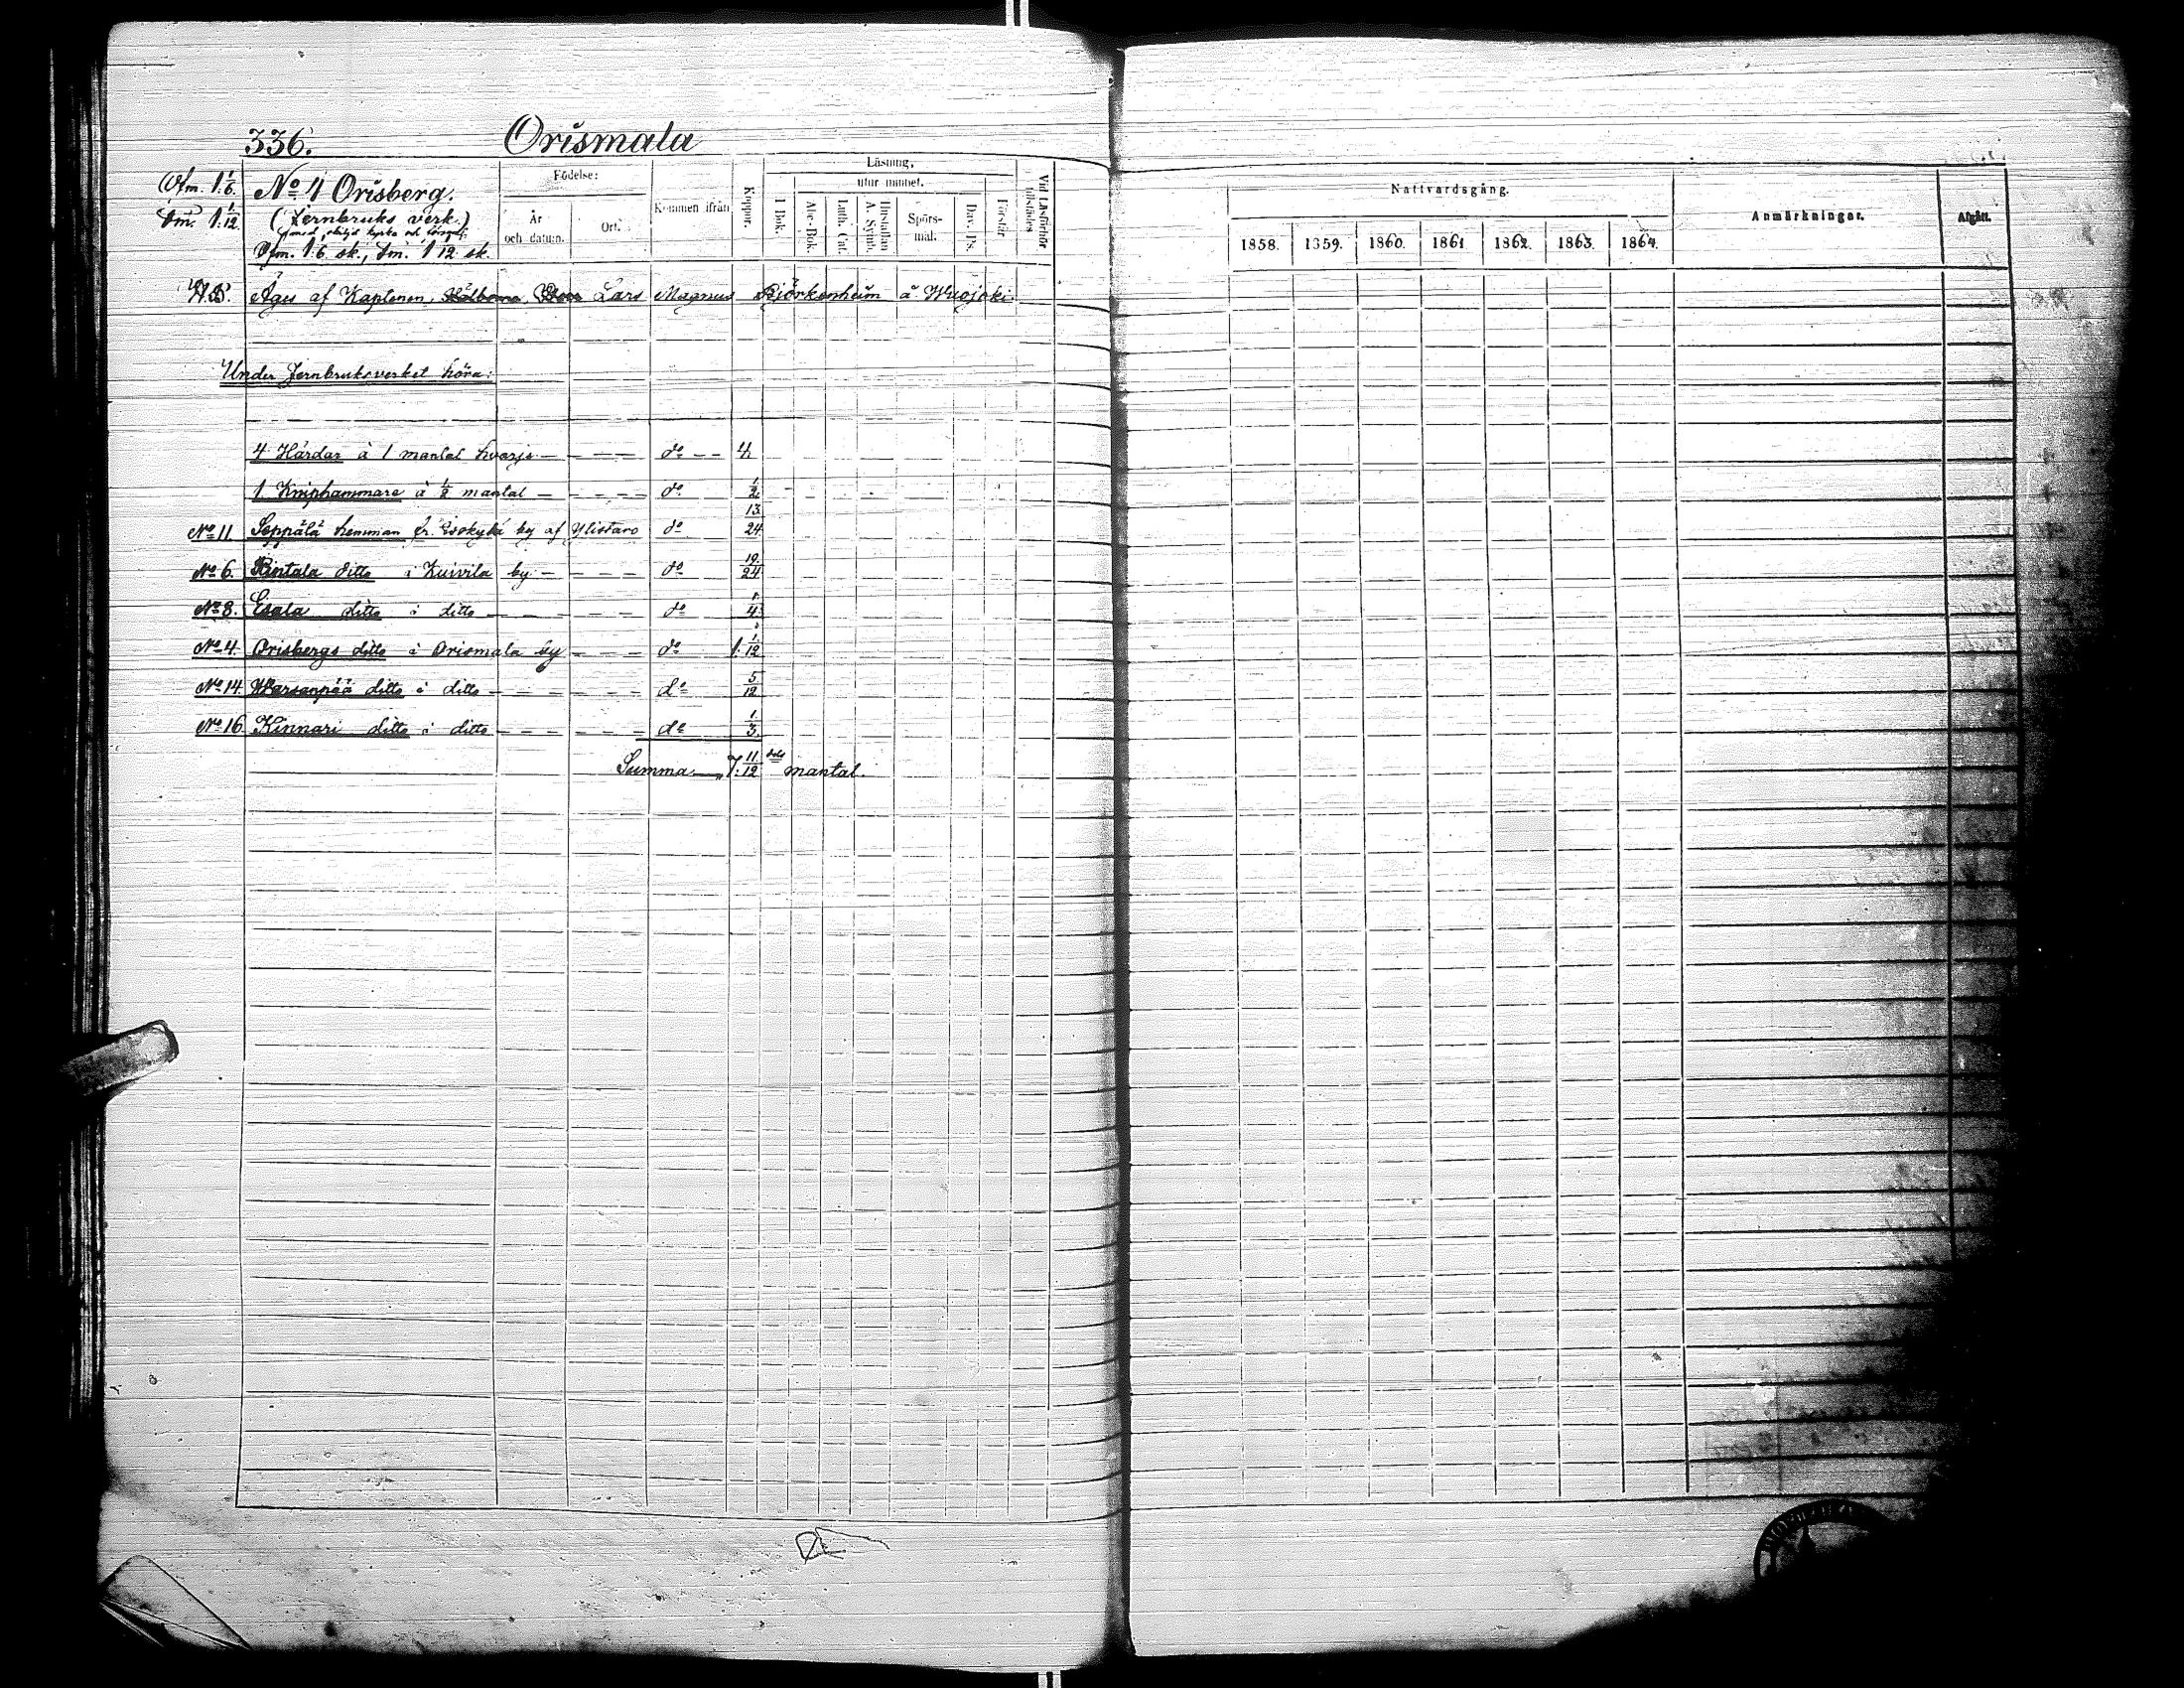 336. Orismala
Ofm. 1 1/6.
Fm. 1 1/12.
No 4 Orisberg.
(Jernbruks verk.)
med kyrka och
Ofm. 1:6 sk., Fm. 1 12 sk.
Födelse:
År och datum.
Ort.
Kommen ifrån
Koppor.
Läsning,
I Bok.
utur minnet.
Abc-Bok.
Luth. Cat.
Hustaflan A. Symb.
Spörs-mål.
Dav. Ps.
Förstår
Vid Läsförhör tillstädes
Nattvardsgång.
1858. 1859. 1860. 1861 1862. 1863. 1864.
Anmärkningar.
Afgått.
N.B. Äges af Kaptenen, Lars Magnus Björkenheim å Wuojoki
Under Jernbruksverket höra:
4 Härdar à 1 mantal hvarje — do — 4.
1 Kniphammare à 1/2 mantal — do 1/2.
No 11. Seppälä hemman fr. Isokylä by af Ylistaro do 13/24
No 6. Rintala ditto i Kuivila by — do 19/24
No 8. Esala ditto i ditto — do 1/4.
No 4. Orisbergs ditto i Orismala by — do 1. 1/12
No 14. Warsanpää ditto i ditto — do 5/12
No 16. Kinnari ditto i ditto — do 1/3.
Summa — 7. 11/12 dels mantal.